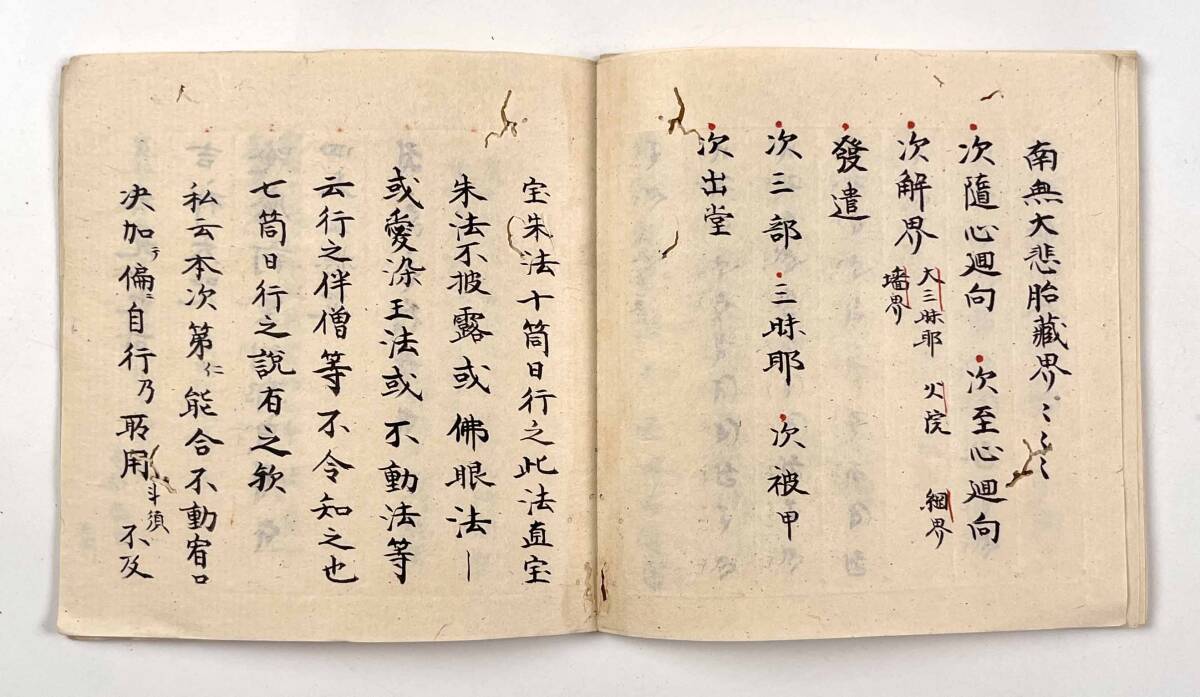 南無大悲胎藏界〻〻〻
次隨心廻向　次至心廻向
次解界　大三昧耶　火院　網界
墻界
發遣
次三部　三昧耶　次被甲
次出堂
宝朱法十箇日行之此法直宝
朱法不披露或佛眼法
或愛染王法或不動法等
云行之伴僧等不令知之也
七箇日行之説有之欤
私云本次第仁能合不動
决加テ偏ニ自行乃取用 不及